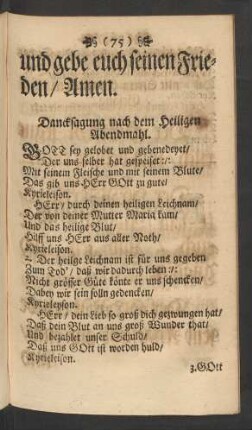 (75)
und gebe euch seinen Frie-
den/ Amen.
Dancksagung nach dem Heiligen
Abendmahl.
GOTT sey gelobet und gebenedeyet/
Der uns selber hat gespeiset :/:
Mit seinem Fleische und mit seinem Blute/
Das gib uns HErr GOtt zu gute/
Kyrieleison.
HErr/ durch deinen heiligen Leichnam/
Der von deiner Mutter Maria kam/
Und das heilige Blut/
Hilff uns HErr aus aller Noth/
Kyrieleison.
2. Der heilge Leichnam ist für uns gegeben
Zum Tod'/ daß wir dadurch leben :/:
Nicht grösser Güte könte er uns schencken/
Dabey wir sein solln gedencken/
Kyrieleyson.
HErr/ dein Lieb so groß dich gezwungen hat/
Daß dein Blut an uns groß Wunder that/
Und bezahlet unser Schuld/
Daß uns GOtt ist worden huld/
Kyrieleison.
3. GOtt